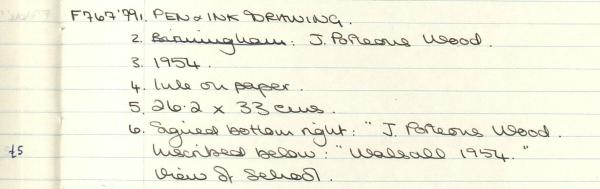 F767'79 1. PEN & INK DRAWING.
2. Birmingham: J. Porteous Wood.
3. 1954.
4. Ink on paper.
5. 26.2 x 33 cms.
6. Signed bottom right: "J. Porteous Wood.
Inscribed below: "Walsall 1954."
View of School.